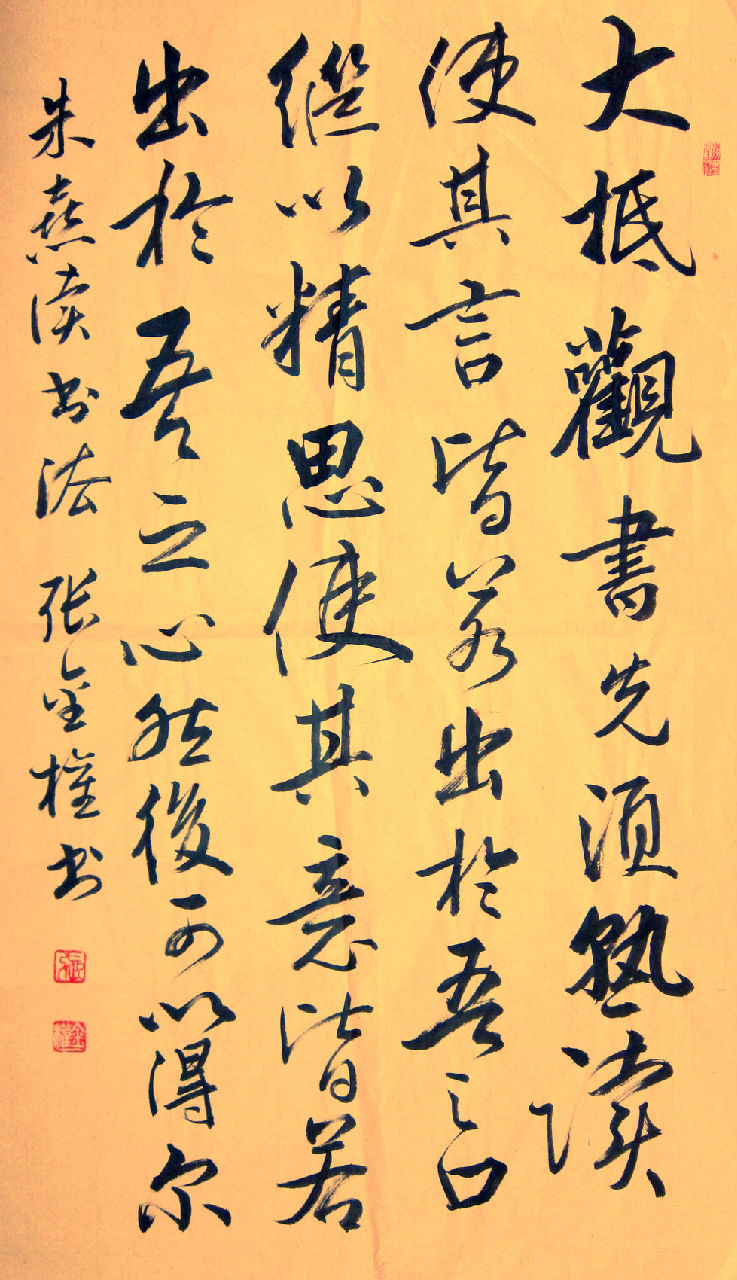 大抵觀書先須熟读
使其言皆若出於吾之口
繼以精思使其意皆若
出於吾之心然後可以得尔
朱熹读书法 张金權书
張
金權